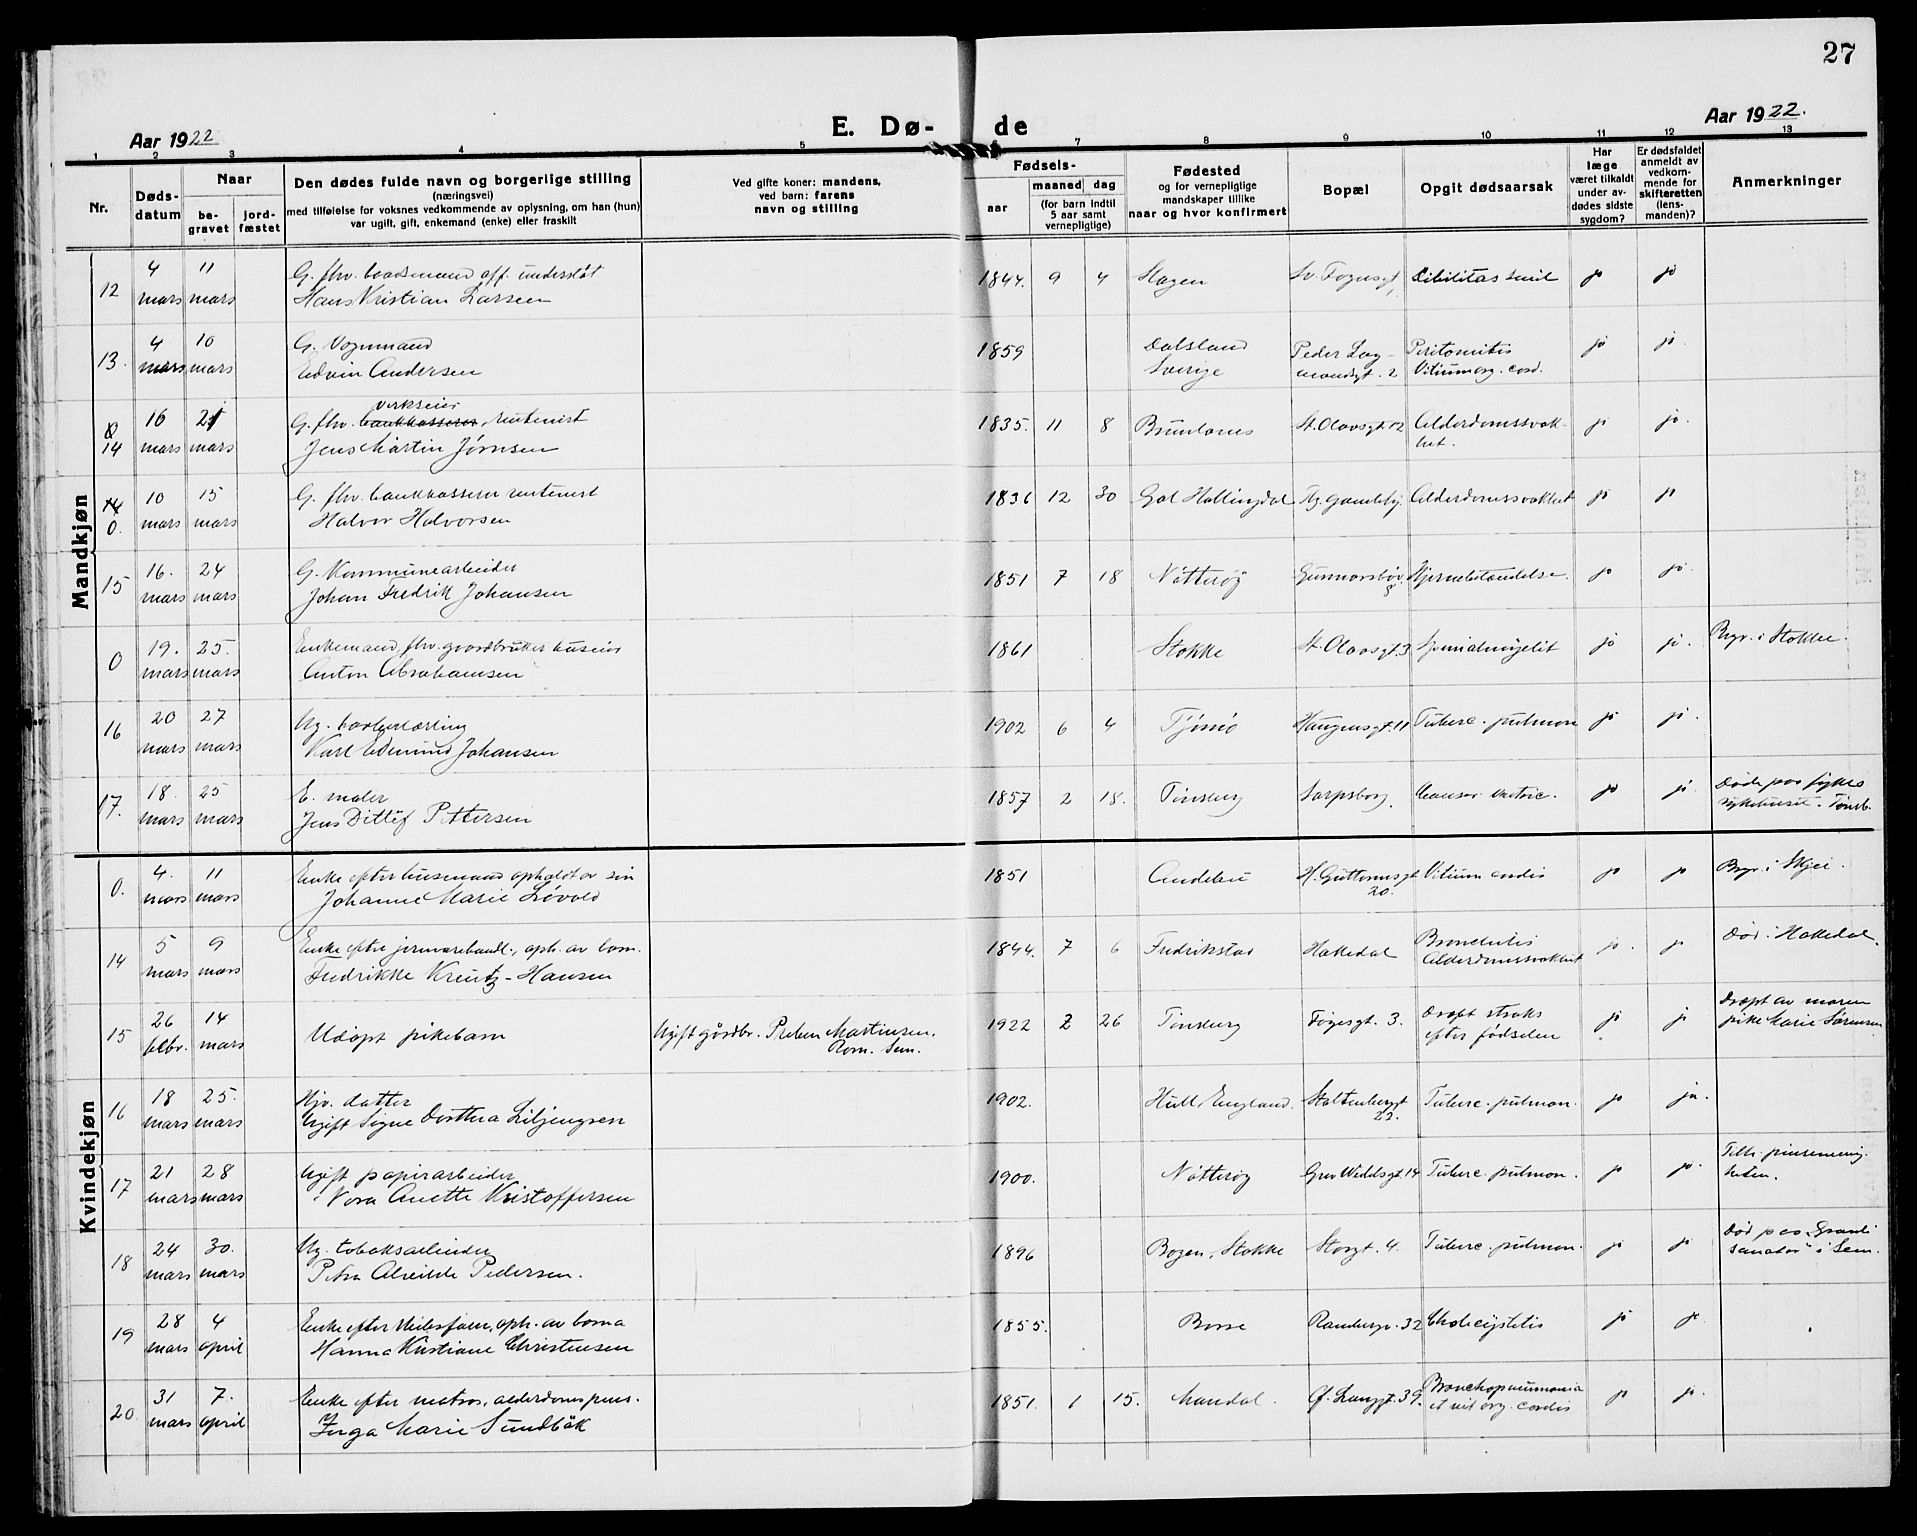 27
Aar 1922
E. Dø- de
Aar 1922.
1 2 3 4 5 6 7 8 9 10 11 12 13
Nr.
Døds-
datum
Naar
be-
gravet
jord-
fæstet
Den dødes fulde navn og borgerlige stilling
(næringsvei)
med tilføielse for voksnes vedkommende av oplysning, om han (hun)
var ugift, gift, enkemand (enke) eller fraskilt
Ved gifte koner: mandens,
ved barn: farens
navn og stilling
Fødsels-
aar
maaned dag
(for barn indtil
5 aar samt
vernepligtige)
Fødested
og for vernepligtige
mandskaper tillike
naar og hvor konfirmert
Bopæl
Opgit dødsaarsak
Har
læge
været tilkaldt
under av-
dødes sidste
sygdom?
Er dødsfaldet
anmeldt av
vedkom-
mende for
skifteretten
(lens-
manden)?
Anmerkninger
Mandkjøn
12 4 mars 11 mars
G. fhv. baadsmand off. understøt
Hans Kristian Larsen
1844. 9 4 Slagen Sv. Foynsgt. Debilitas senil jo jo
13. 4 mars 10 mars
G. Vognmand
Edvin Andersen
1859 Dalsland
Sverige
Peder Bog-
mandsgt. 2
Peritonitis
Vitium org. cord.
jo jo.
0
14 16 mars 21 mars
verkseier
G. fhv. bankkasserer rentenist
Jens Martin Jørnsen
1835. 11 8 Brunlanes St. Olavsgt. 12 Alderdomssvak-
het.
jo jo.
14
0. 10 mars 15 mars
G. fhv. bankkasserer rentenist
Halvor Halvorsen
1836 12 30 Gol Hallingdal Tbg. gamleby. Alderdomssvakhet jo jo
15 16. mars 24 mars
G. Kommunearbeider
Johan Fredrik Johansen
1851 7 18 Nøtterøy Gunnarsbøv. 8 Hjernebetændelse. jo jo.
0 19. mars 25. mars
Enkemand, fhv. gaardbruker huseier
Anton Abrahamsen
1861 Stokke St. Olavsgt. 3 jo jo. Begr. i Stokke.
16 20 mars 27 mars
Ug. barberlærling
Karl Edmund Johansen
1902 6 4 Tjømø Haugensgt. 11 Tuberc. pulmon jo jo.
17. 18. mars 25 mars
E. maler
Jens Ditlef Pettersen
1857 2 18. Tønsberg Sarpsborg. Cancer ventric. jo jo. Døde paa fylkes
sykehuset i Tønsb.
Kvindekjøn
0. 4. mars 11 mars
Enke efter husmand opholdt av søn
Johanne Marie Løvold
1851 Andebu H. Guttormsgt.
20.
Vitium cordis jo jo Begr. i Skjee.
14 5 mars 9 mars
Enke efter jernvarehandl., oph. av barn.
Fredrikke Kreutz-Hansen
1844. 7 6 Fredrikstad Hakedal Bronchitis
Alderdomssvakhet
jo. jo Død i Hakedal.
15 26 febr. 14 mars
Udøpt pikebarn
Ugift gårdbr. Preben Martinsen.
Rom. Sem.
1922 2 26 Tønsberg Føgesgt. 3. Dræpt straks
efter fødselen
jo jo Dræpt av moren
pike Marie Sørensen
16 18 mars 25. mars
Hjv. datter
Ugift Signe Dorthea Liljengren
1902. Hull, England. Stoltenbergt
23.
Tuberc. pulmon. jo ja.
17 21 mars 28 mars
Ugift papirarbeider
Nora Anette Kristoffersen
1900. Nøtterøy Grev Wedelsgt. 14 Tuberc. pulmon. jo jo. Tilh. pinsemenig-
heten.
18 24 mars 30. mars
Ug. tobaksarbeider
Petra Alvilde Pedersen.
1896 Bogen, Stokke Storgt. 4. Tuberc. pulmon. jo jo Død paa "Granli
sanator" i Sem.
19 28 mars 4 april
Enke efter seilesføm., oph. av barna
Hanna Kristiane Christensen
1855. Borre Rambergv. 32 Cholecystitis jo jo.
20. 31 mars 7. april
Enke efter matros, alderdomspens.
Inga Marie Sundbåk
1851. 1 15. Mandal. Ø. Langgt. 39. Bronchopneumonia
et vit. org. cordis
jo jo.